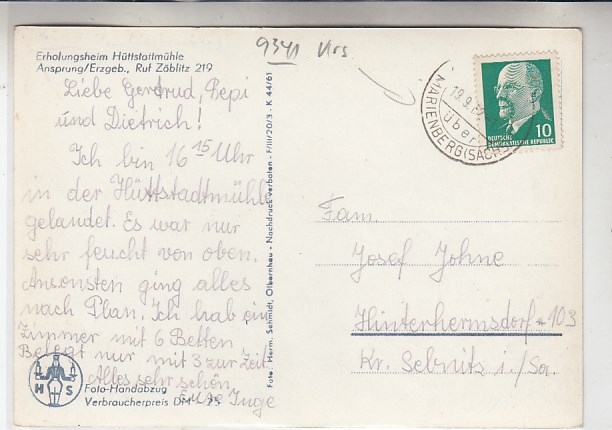 9341 Krs
Erholungsheim Hüttstattmühle
Ansprung/Erzgeb., Ruf Zöblitz 219
Liebe Gertrud, Pepi
und Dietrich!
Ich bin 16 15 Uhr
in der Hüttstadtmühle
gelandet. Es war nur
sehr feucht von oben.
Ansonsten ging alles
nach Plan. Ich hab ein
Zimmer mit 6 Betten
Belegt nur mit 3 zur Zeit
Alles sehr schön
Eure Inge
H S
Foto-Handabzug
Verbraucherpreis DM -,25
Foto: Herm. Schmidt, Olbernhau - Nachdruck verboten - F/III/20/3 - K 44/61
MARIENBERG (SACHS
19.9.6
über
10
DEUTSCHE
DEMOKRATISCHE REPUBLIK
Fam.
Josef Johne
Hinterhermsdorf 103
Kr. Sebnitz i./Sa.